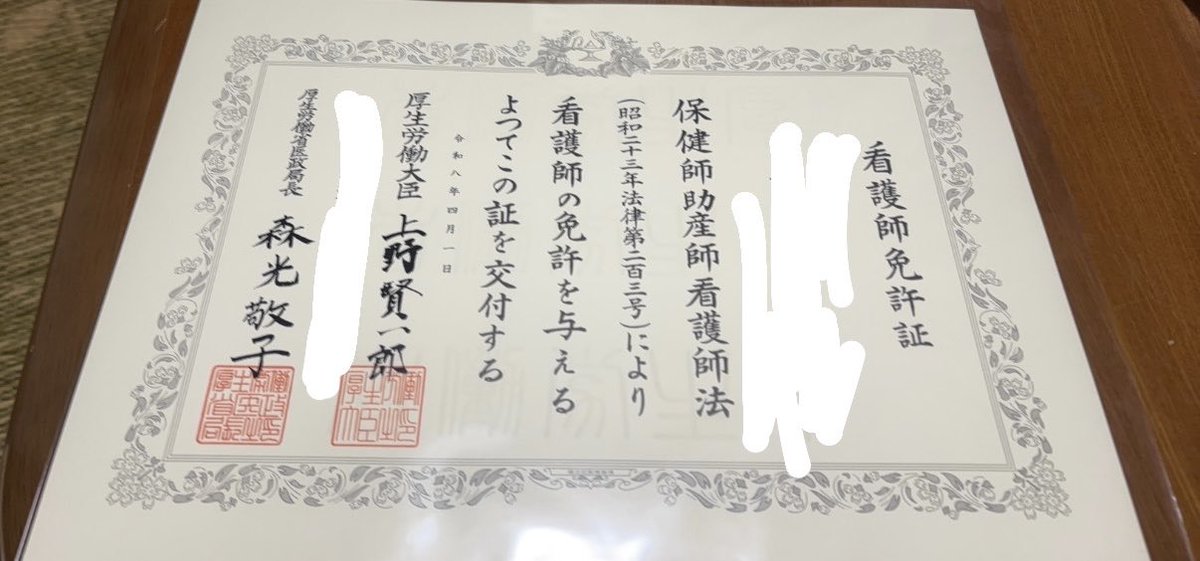 看護師免許証
保健師助産師看護師法
(昭和二十三年法律第二百三号)により
看護師の免許を与える
よつてこの証を交付する
令和八年四月一日
厚生労働大臣 上野賢一郎
厚生労働省医政局長 森光敬子